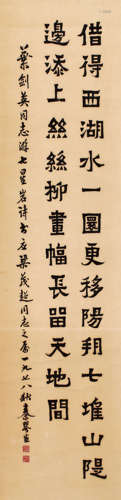 借得西湖水一圜更移陽朔七堆山隄
邊添上絲絲柳畫幅長留天地間
葉劍英同志游七星岩詩書應梁茂超同志之屬一九七八秋秦咢生